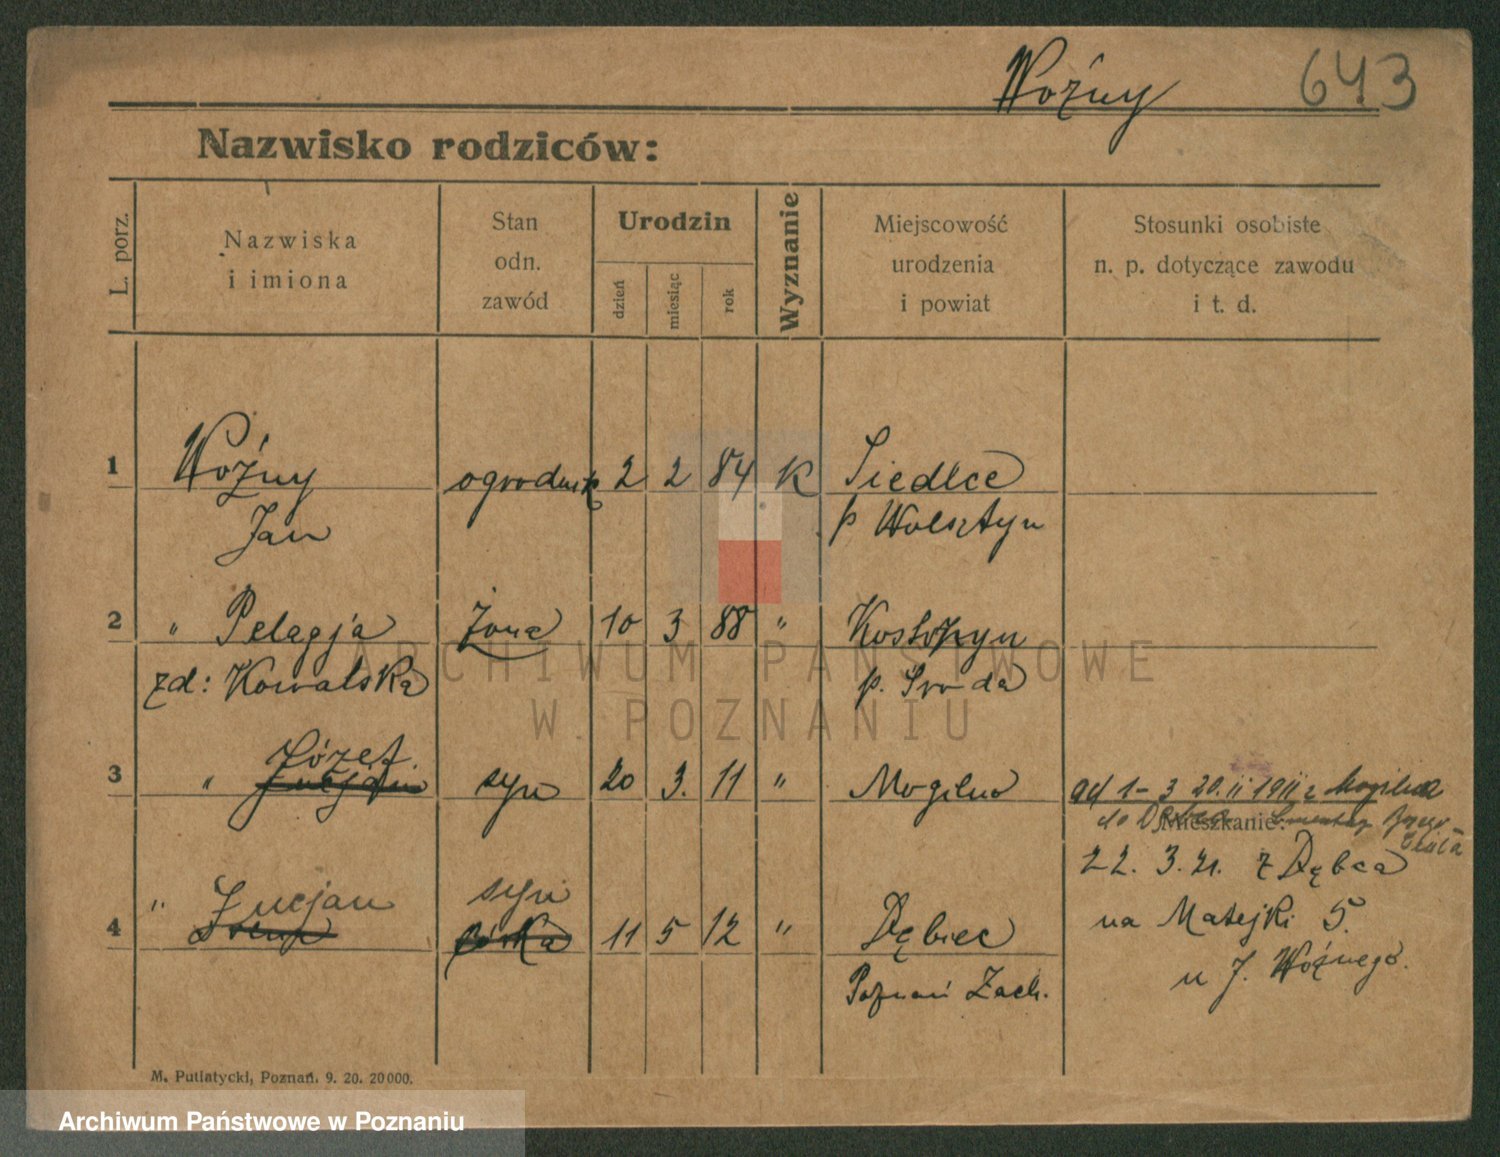 Woźny 643
Nazwisko rodziców:
L. porz.
Nazwiska
i imiona
Stan
odn.
zawód
Urodzin
dzień
miesiąc
rok
Wyznanie
Miejscowość
urodzenia
i powiat
Stosunki osobiste
n. p. dotyczące zawodu
i t. d.
1 Woźny ogrodnik 2 2 84 K Siedlce
Jan p Wolsztyn
2 " Pelagja żona 10 3 88 " Kostrzyn
zd: Kowalska p. Środa
Józef
3 " Lucjan syn 20 3. 11 " Mogilno od 1-3 20.II 19 Mogilna
do Mieszkanie:
22. 3. 21. z Dębca
" Lucjan syn
4 córka 11 5 12 " Dębiec na Matejki 5.
u J. Woźnego.
Poznań Zach.
M. Putiatycki, Poznań. 9. 20. 20000.
ARCHIWUM PAŃSTWOWE
W POZNANIU
Archiwum Państwowe w Poznaniu